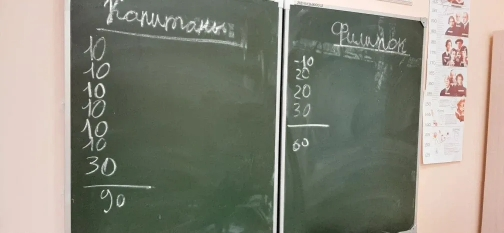 Капитаны
10
10
10
10
10
10
30
90
Филипок
-10
20
20
30
60